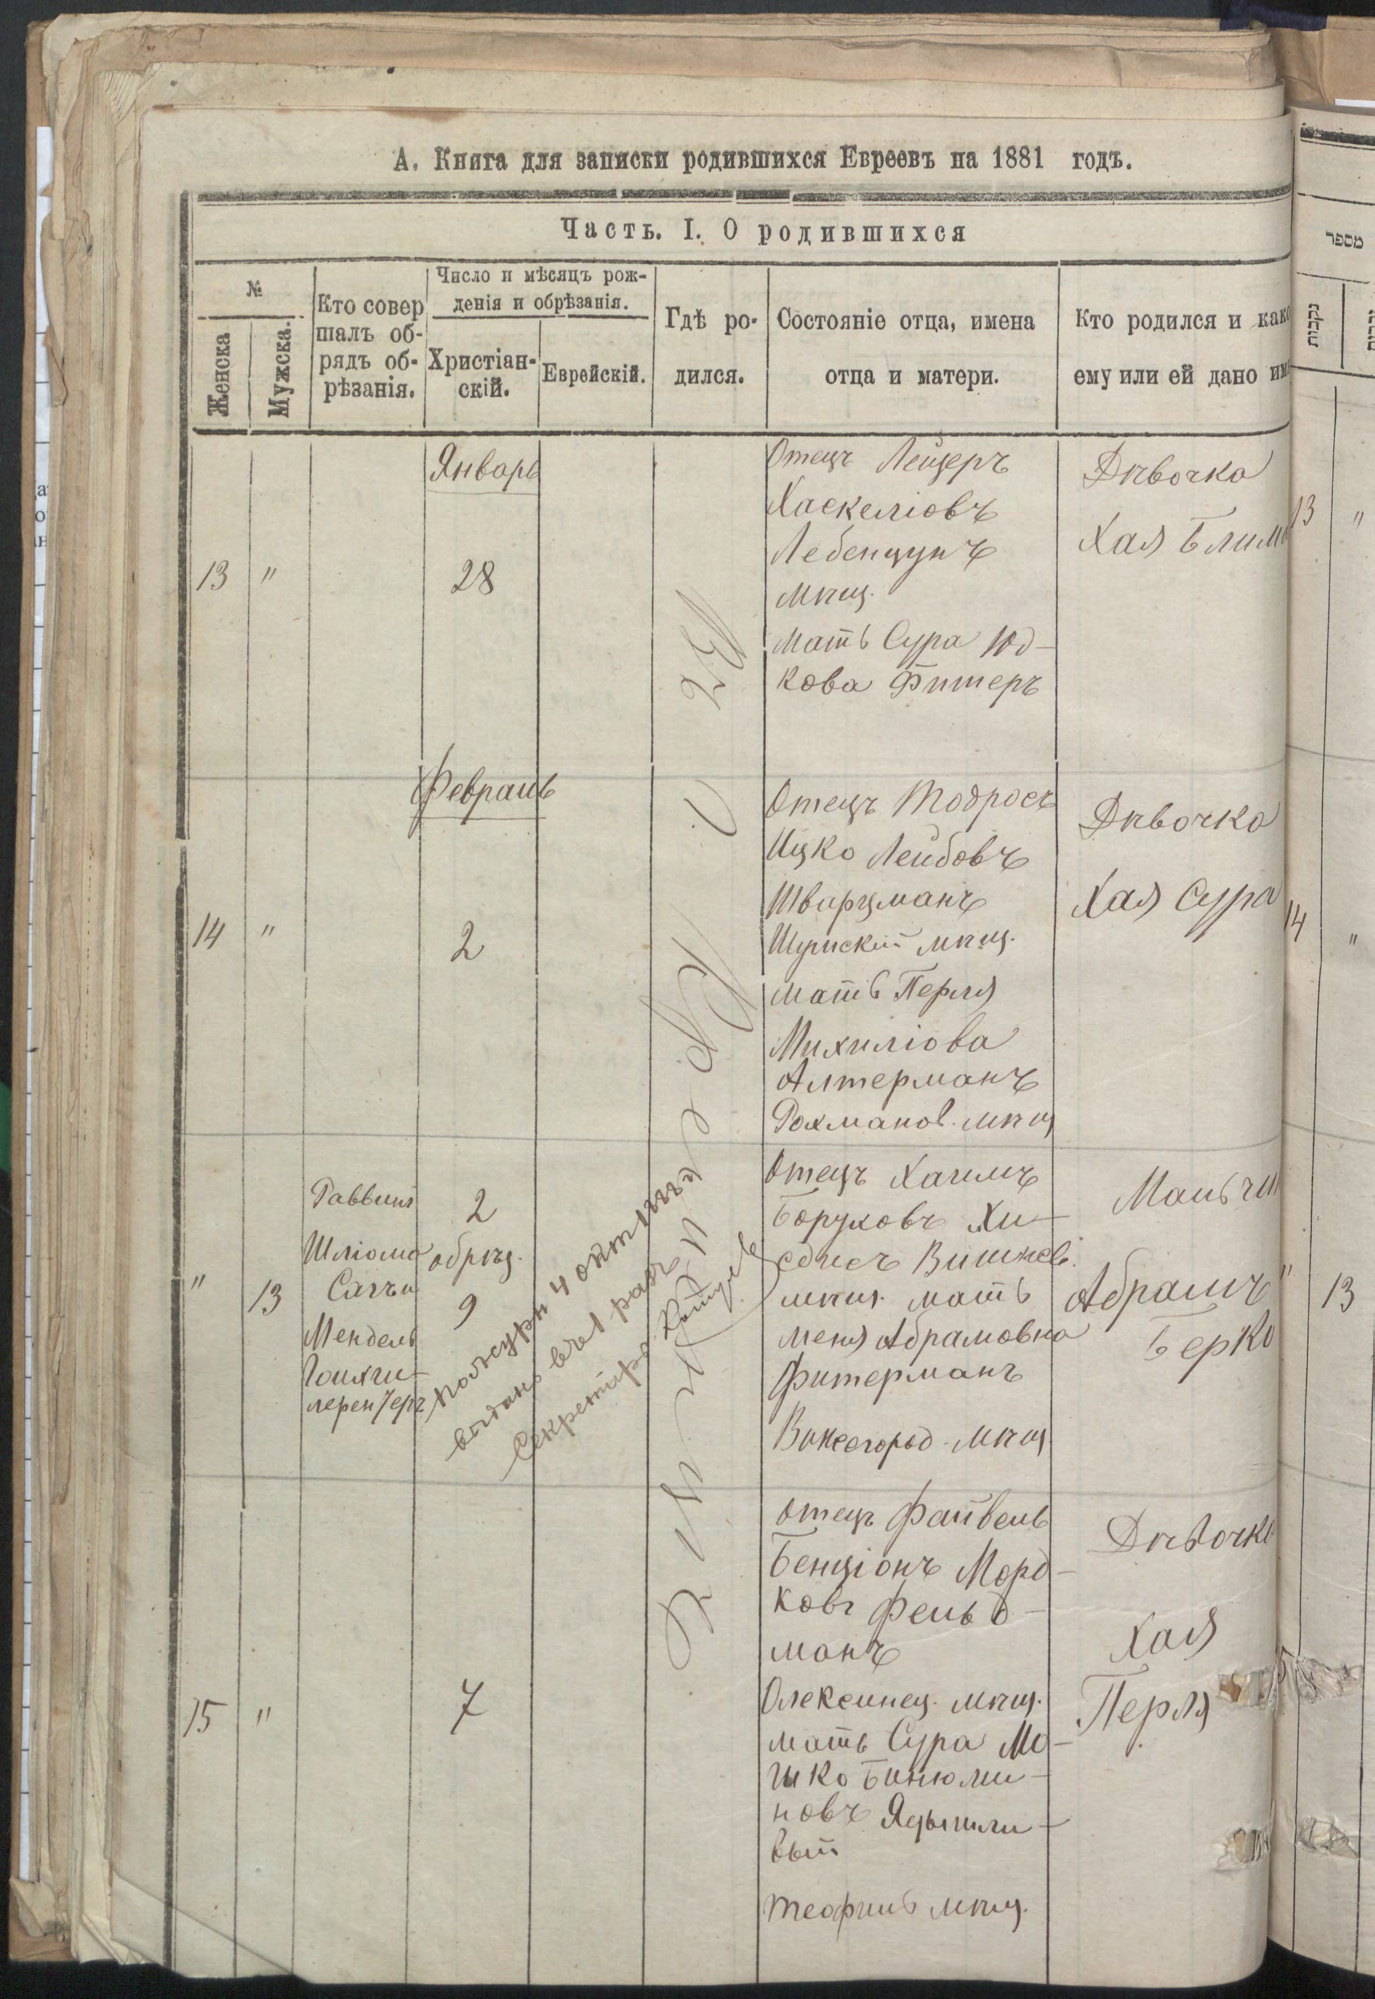 А. Книга для записки родившихся Евреевъ на 1881 годъ.
Часть. I. О родившихся
№
Женска
Мужска.
Кто совер
шалъ об-
рядъ об-
рѣзанія.
Число и мѣсяцъ рож-
денія и обрѣзанія.
Христіан-
скій.
Еврейскій.
Гдѣ ро-
дился.
Состояніе отца, имена
отца и матери.
Кто родился и како
ему или ей дано им
מספר
נקבות
13 "
Январь
28
Отецъ Лейзеръ
Хаскеліовъ
Лебенцунъ
мѣщ.
мать Сура Юд-
кова Фитеръ
Дѣвочка
Хая Блима
13 "
14 "
Февраль
2
Отецъ Тодросъ
Ицко Лейбовъ
Шварцманъ
Шумский мѣщ.
мать Перля
Михиліова
Алтерманъ
Рохманов. мѣщ
Дѣвочка
Хая Сура
14 "
" 13
Раввинъ
Шліома
Мендель
2
обрѣз.
9
выданъ
Секретарь
Отецъ Хаимъ
Боруховъ Хи-
Вишнев.
мѣщ. мать
меня Абрамовна
Фитерманъ
Вишегород. мѣщ.
Мальчи
Абрамъ
Берко
" 13
15 "
7
отецъ Файвель
Бенціонъ Морд-
ковъ Фельд-
манъ
Олексинец. мѣщ.
мать Сура Мо-
шко Бинюми-
новъ
Теофиль мѣщ.
Дѣвочка
Хая
Перля